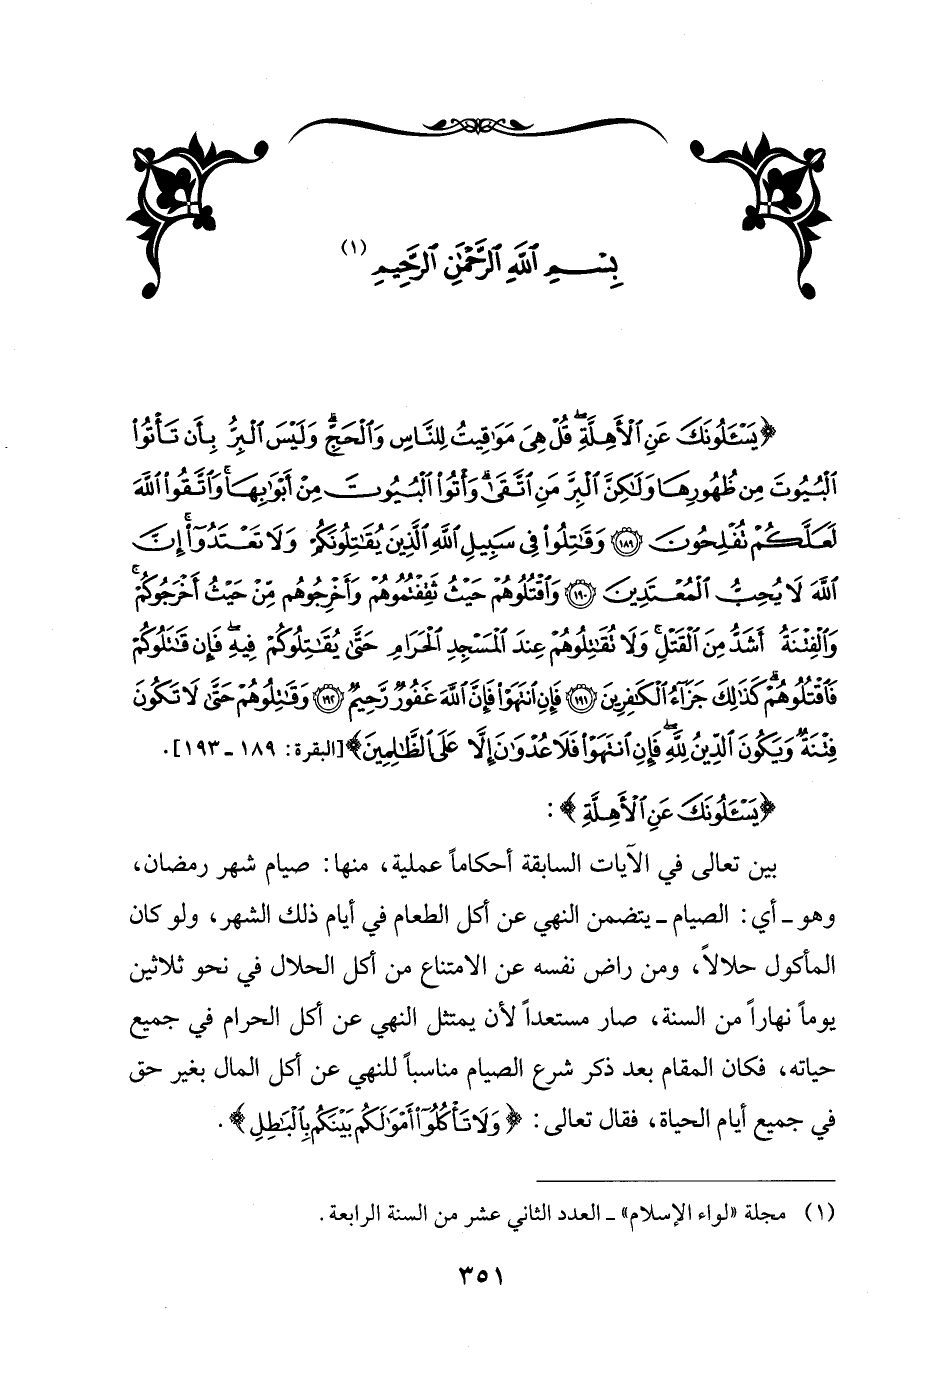 بِسْمِ ٱللَّهِ ٱلرَّحْمَٰنِ ٱلرَّحِيمِ (١)
﴿يَسْـَٔلُونَكَ عَنِ ٱلْأَهِلَّةِ ۖ قُلْ هِىَ مَوَٰقِيتُ لِلنَّاسِ وَٱلْحَجِّ ۗ وَلَيْسَ ٱلْبِرُّ بِأَن تَأْتُوا۟
ٱلْبُيُوتَ مِن ظُهُورِهَا وَلَٰكِنَّ ٱلْبِرَّ مَنِ ٱتَّقَىٰ ۗ وَأْتُوا۟ ٱلْبُيُوتَ مِنْ أَبْوَٰبِهَا ۚ وَٱتَّقُوا۟ ٱللَّهَ
لَعَلَّكُمْ تُفْلِحُونَ ﴿١٨٩﴾ وَقَٰتِلُوا۟ فِى سَبِيلِ ٱللَّهِ ٱلَّذِينَ يُقَٰتِلُونَكُمْ وَلَا تَعْتَدُوٓا۟ ۚ إِنَّ
ٱللَّهَ لَا يُحِبُّ ٱلْمُعْتَدِينَ ﴿١٩٠﴾ وَٱقْتُلُوهُمْ حَيْثُ ثَقِفْتُمُوهُمْ وَأَخْرِجُوهُم مِّنْ حَيْثُ أَخْرَجُوكُمْ ۚ
وَٱلْفِتْنَةُ أَشَدُّ مِنَ ٱلْقَتْلِ ۚ وَلَا تُقَٰتِلُوهُمْ عِندَ ٱلْمَسْجِدِ ٱلْحَرَامِ حَتَّىٰ يُقَٰتِلُوكُمْ فِيهِ ۖ فَإِن قَٰتَلُوكُمْ
فَٱقْتُلُوهُمْ ۗ كَذَٰلِكَ جَزَآءُ ٱلْكَٰفِرِينَ ﴿١٩١﴾ فَإِنِ ٱنتَهَوْا۟ فَإِنَّ ٱللَّهَ غَفُورٌ رَّحِيمٌ ﴿١٩٢﴾ وَقَٰتِلُوهُمْ حَتَّىٰ لَا تَكُونَ
فِتْنَةٌ وَيَكُونَ ٱلدِّينُ لِلَّهِ ۖ فَإِنِ ٱنتَهَوْا۟ فَلَا عُدْوَٰنَ إِلَّا عَلَى ٱلظَّٰلِمِينَ﴾ [البقرة: ١٨٩ ـ ١٩٣].
﴿يَسْـَٔلُونَكَ عَنِ ٱلْأَهِلَّةِ﴾:
بين تعالى في الآيات السابقة أحكاماً عملية، منها: صيام شهر رمضان،
وهو ـ أي: الصيام ـ يتضمن النهي عن أكل الطعام في أيام ذلك الشهر، ولو كان
المأكول حلالاً، ومن راض نفسه عن الامتناع من أكل الحلال في نحو ثلاثين
يوماً نهاراً من السنة، صار مستعداً لأن يمتثل النهي عن أكل الحرام في جميع
حياته، فكان المقام بعد ذكر شرع الصيام مناسباً للنهي عن أكل المال بغير حق
في جميع أيام الحياة، فقال تعالى: ﴿وَلَا تَأْكُلُوٓا۟ أَمْوَٰلَكُم بَيْنَكُم بِٱلْبَٰطِلِ﴾.
(١) مجلة «لواء الإسلام» ـ العدد الثاني عشر من السنة الرابعة.
٣٥١